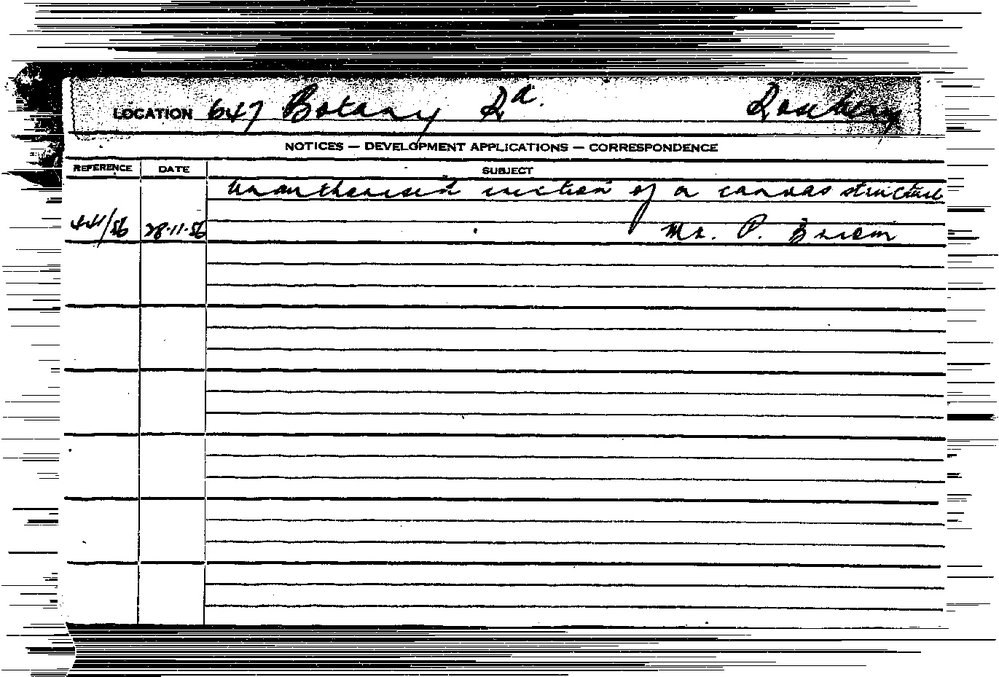 LOCATION 647 Botany Rd. Rosebery
NOTICES — DEVELOPMENT APPLICATIONS — CORRESPONDENCE
REFERENCE DATE SUBJECT
Unauthorised erection of a canvas structure
28.11.56 Mr. P.